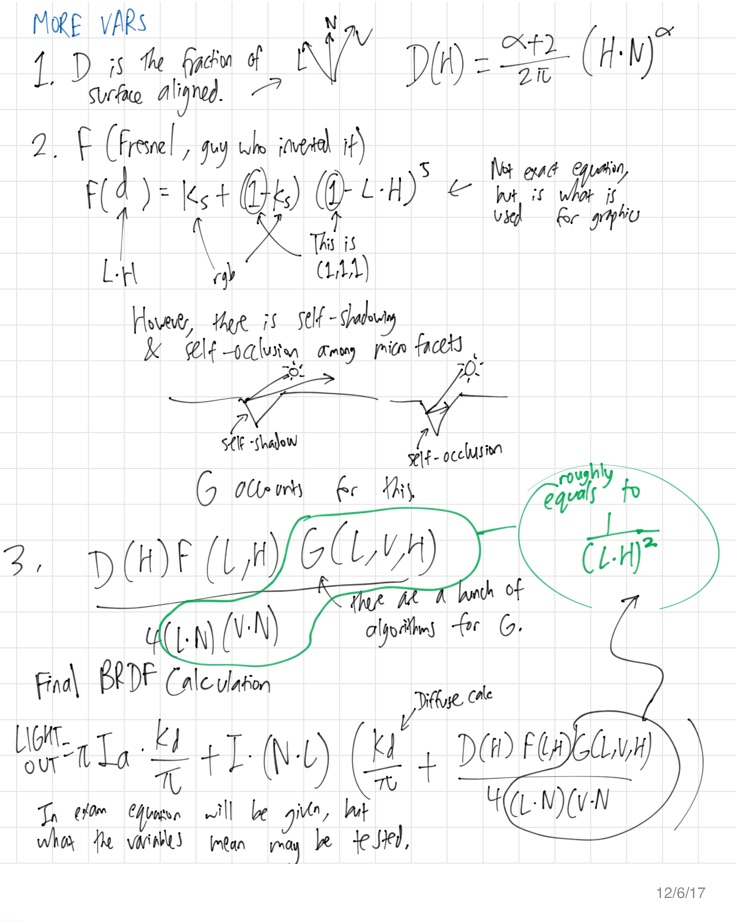 MORE VARS
1. D is the fraction of
surface aligned.
L N V
D(H) = α+2 / 2π (H·N)^α
2. F (Fresnel, guy who invented it)
F(d) = Ks + (1-ks) (1-L·H)^5
Not exact equation,
but is what is
used for graphics
L·H
rgb
This is
(1,1,1)
However, there is self-shadowing
& self-occlusion among micro facets
self-shadow
self-occlusion
G accounts for this.
roughly
equals to
1 / (L·H)^2
3. D(H) F(L,H) G(L,V,H)
4(L·N)(V·N)
there are a bunch of
algorithms for G.
Final BRDF Calculation
Diffuse calc
LIGHT OUT = π Ia · kd/π + I · (N·L) (kd/π + D(H) F(L,H) G(L,V,H) / 4(L·N)(V·N)
In exam equation will be given, but
what the variables mean may be tested.
12/6/17